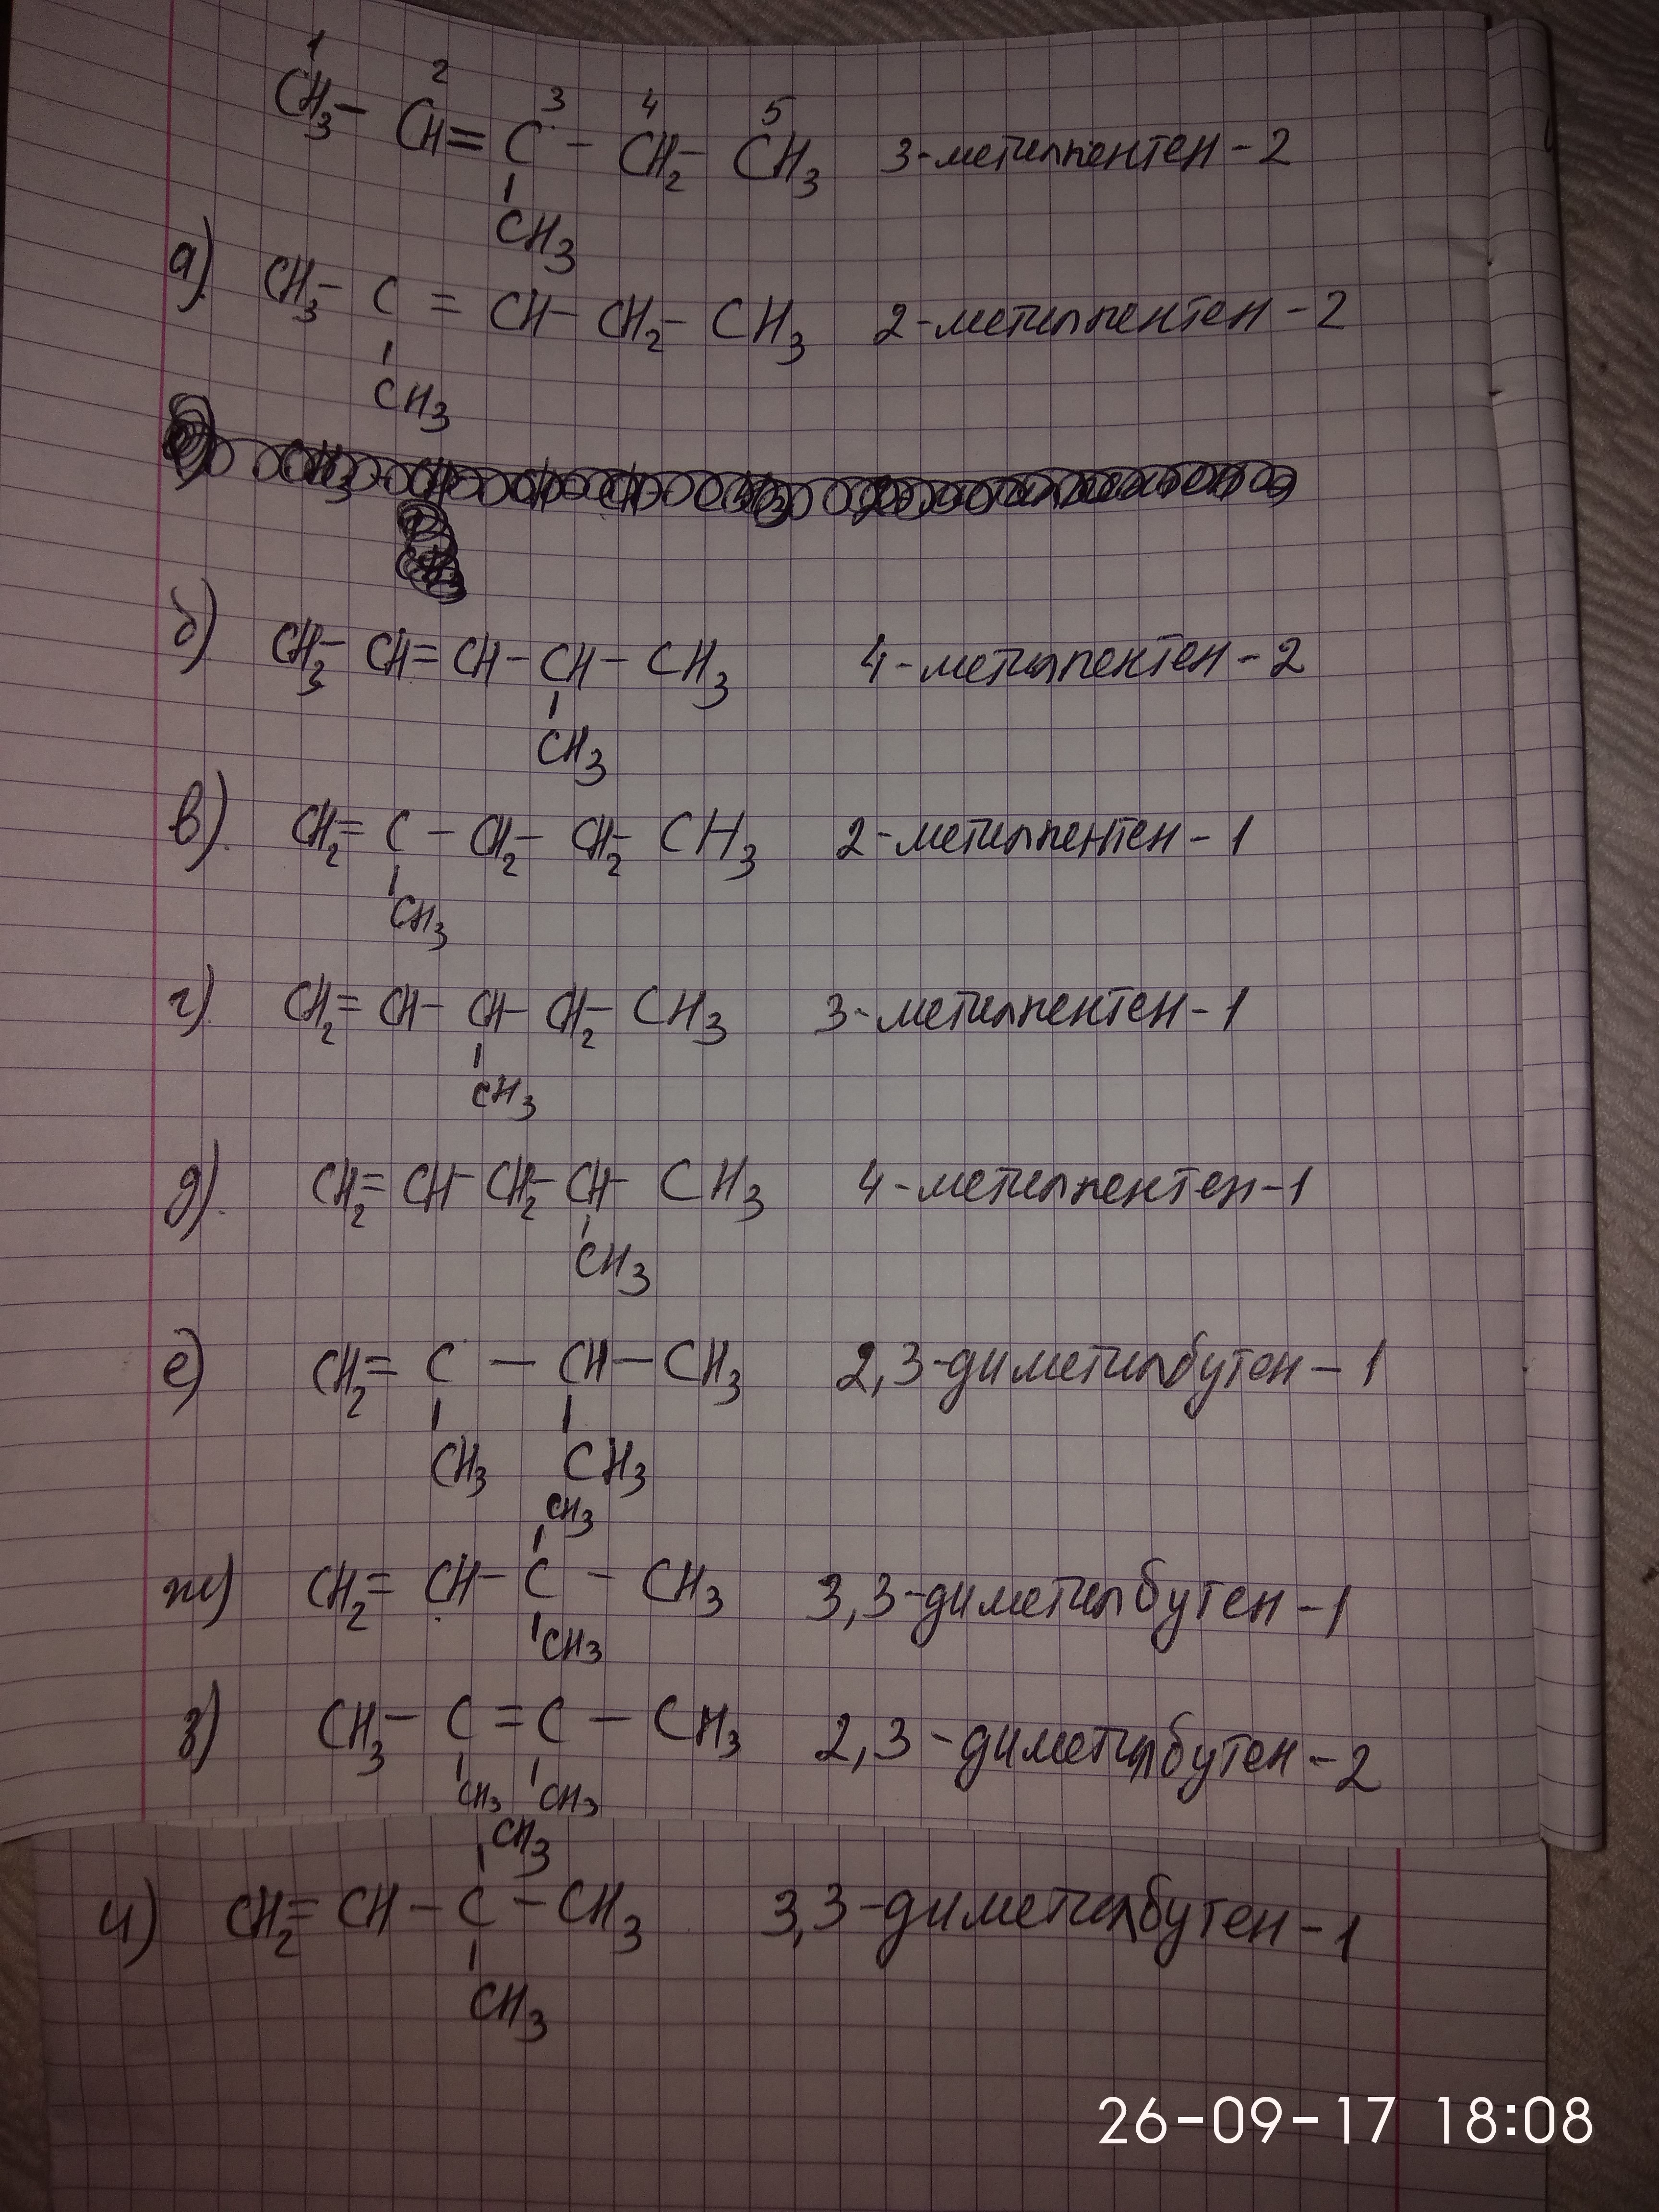 1 2 3 4 5
CH₃ – CH = C – CH₂ – CH₃ 3-метилпентен-2
CH₃
а) CH₃ – C = CH – CH₂ – CH₃ 2-метилпентен-2
CH₃
б) CH₃ – CH = CH – CH – CH₃ 4-метилпентен-2
CH₃
в) CH₂ = C – CH₂ – CH₂ – CH₃ 2-метилпентен-1
CH₃
г) CH₂ = CH – CH – CH₂ – CH₃ 3-метилпентен-1
CH₃
д) CH₂ = CH – CH₂ – CH – CH₃ 4-метилпентен-1
CH₃
е) CH₂ = C – CH – CH₃ 2,3-диметилбутен-1
CH₃ CH₃
CH₃
ж) CH₂ = CH – C – CH₃ 3,3-диметилбутен-1
CH₃
з) CH₃ – C = C – CH₃ 2,3-диметилбутен-2
CH₃ CH₃
CH₃
и) CH₂ = CH – C – CH₃ 3,3-диметилбутен-1
CH₃
26-09-17 18:08